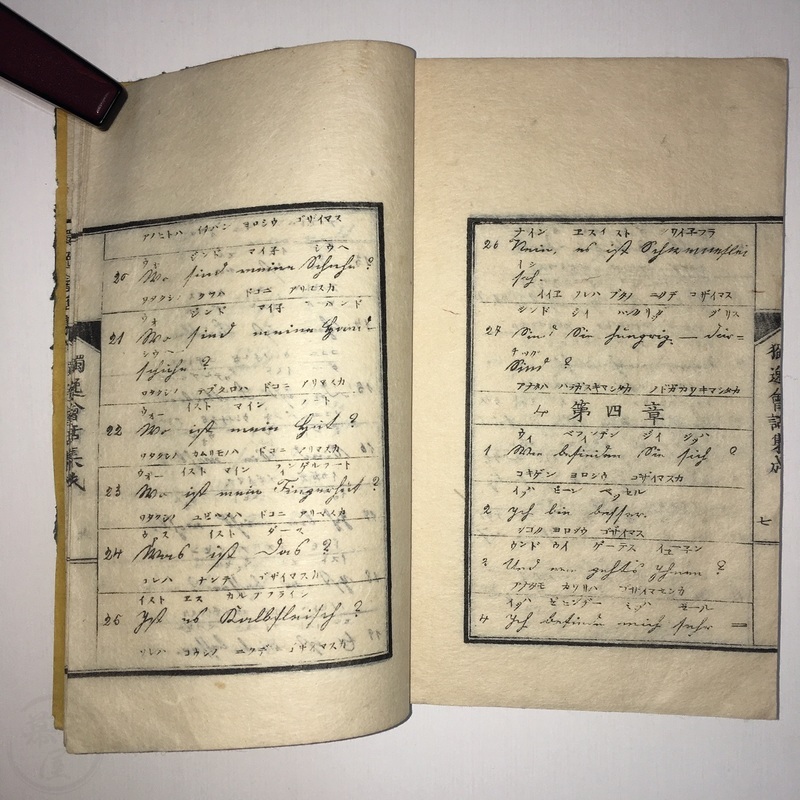 アノヒトハ イチバン ヨロシウ ゴザイマス
ウォ ジンド マイ子 シウヘ
20 Wo sind meine Schuhe?
ワタクシノ クツハ ドコニ アリマスカ
ウォ ジンド マイ子 ハンド
21 Wo sind meine Hand
シウヘ
schuhe?
ワタクシノ テブクロハ ドコニ アリマスカ
ウォー イスト マイン ノト
22 Wo ist mein Hut?
ワタクシノ カムリモノハ ドコニ アリマスカ
ウォー イスト マイン フィンゲルフート
23 Wo ist mein Fingerhut?
ワタクシノ ユビハメハ ドコニ アリマスカ
ウァス イスト ダース
24 Was ist das?
コレハ ナンデ ゴザイマスカ
イスト エス カルブフライン
25 Ist es Kalbfleisch?
ソレハ コウシノ ニクデ ゴザイマスカ
獨逸會話集成
ナイン エスイスト
26 Nein, es ist
イシ
sch.
イイエ ソレハ ブタノ ニクデ ゴザイマス
ジンド ジイ ハングリグ
27 Sind Sie hungrig — dur-
チッグ
Sind?
アナタハ
第四章
ウィ ベフィンデン ジイ ジグ
1 Wie befinden Sie sich?
ゴキゲン ヨロシウ ゴザイマスカ
イグ ビーン ベッセル
2 Ich bin besser.
ヨロシウ ゴザイマス
ウンド ウイ ゲーテス イューネン
3 Und wie geht's Ihnen?
アナタモ カワリハ ゴザイマセンカ
イグ ベヒンデー ミグ ゼール
4 Ich befinde mich sehr =
獨逸會話集成
七